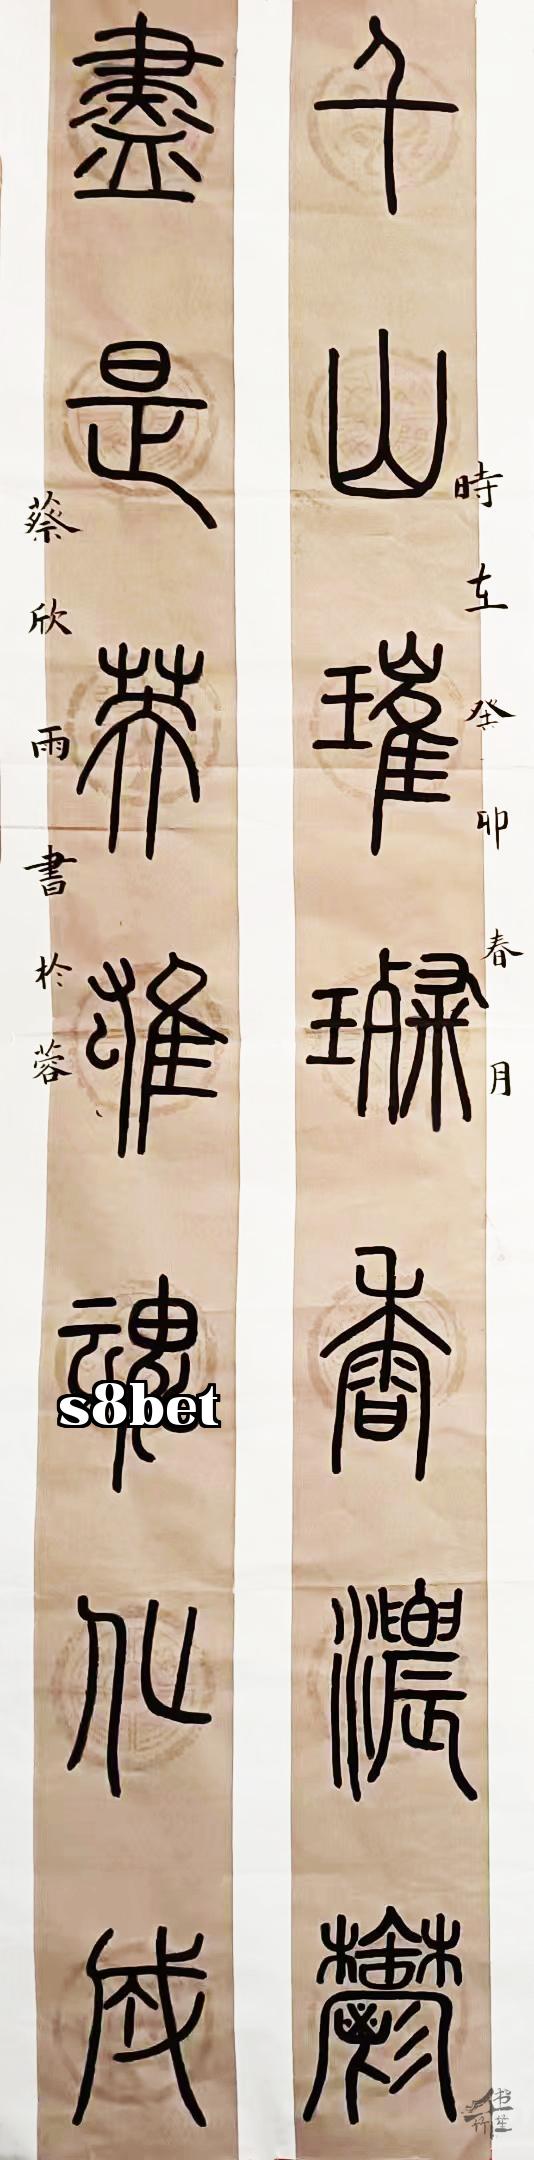 千山璀璨香濃鬱
時在癸卯春月
盡是英雄魂化成
蔡欣雨書於蓉
s8bet